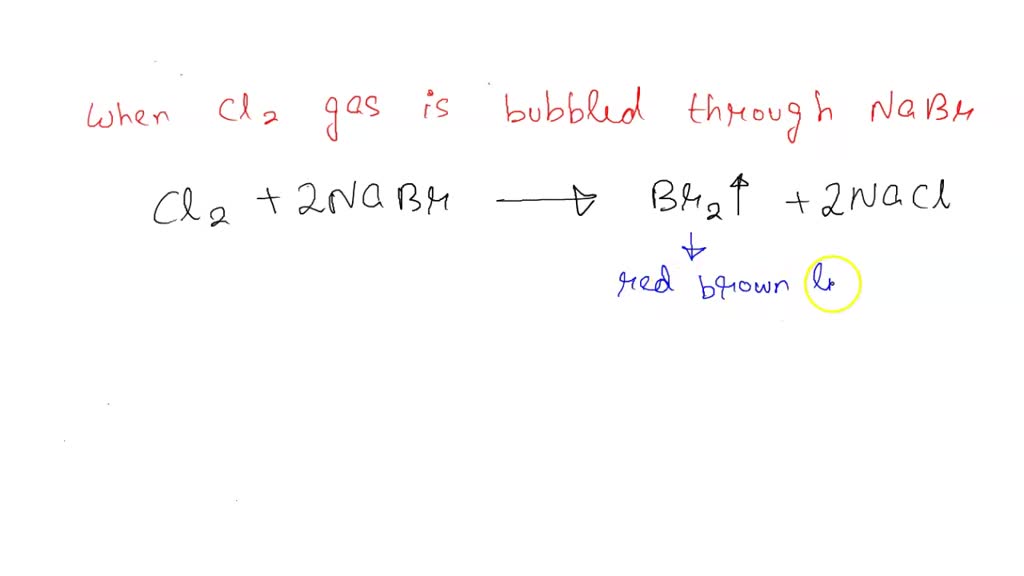 When Cl₂ gas is bubbled through NaBr
Cl₂ + 2NaBr ⟶ Br₂↑ + 2NaCl
↓
red brown